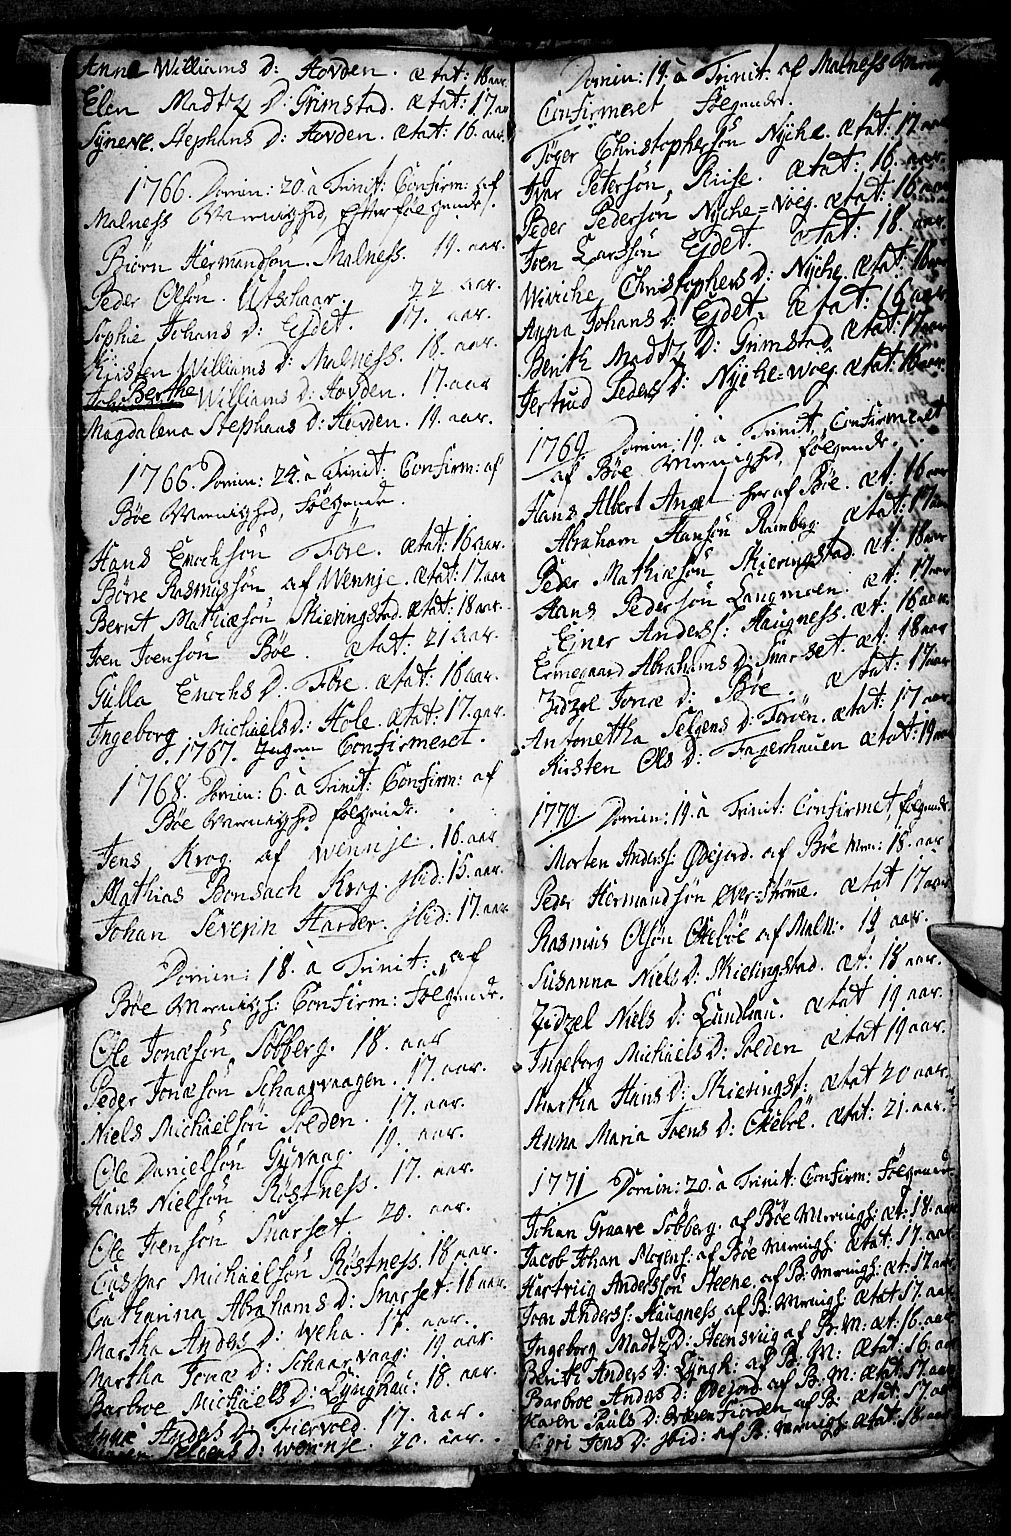 Anna Williams D: Hovden. ætat: 18 aar
Elen Madtz D: Grimstad. ætat: 17. aar
Syneve Stephans D: Hovden. ætat: 16. aar.
1766. Domin: 20. à Trinit: Confirm: af
Malness Menighed, Efterfølgende.
Biørn Hermandsøn. Malness. 19. aar.
Peder Olsøn. Utschaar. 22 aar.
Sophie Johans D: EJdet. 17. aar.
Kirsten Williams D: Malness. 18. aar.
Berthe Williams D: Hovden. 17. aar
Magdalena Stephans D: Hovden. 19. aar.
1766. Domin: 24. à Trinit: Confirm: af
Bøe Menighed, Følgende.
Hans Enochsøn Føre. ætat: 16 aar.
Børre Rasmussøn, af Wennje. ætat: 17 aar
Bernt Mathiæsøn Skieringstad. ætat: 18 aar.
Joen Joensøn Bøe. ætat: 21 aar.
Gulla Enochs D: Føre. ætat: 16 aar.
Ingeborg Michaels D: Hole. ætat: 17. aar.
1767. Ingen Confirmeret.
1768. Domin: 6. à Trinit: Confirm: af
Bøe Menighed følgende.
Jens Krog. af Wennje. 16. aar
Mathias Bonsach Krog. ibid: 15. aar.
Johan Severin Harder. ibid: 17. aar
Domin: 18. à Trinit: af
Bøe Menigh: Confirm: Følgende.
Ole Jonæsøn Sobberg. 18. aar
Peder Jonæsøn Schaarvaagen. 17. aar.
Niels Michaelsøn Solden. 17. aar.
Ole Danielsøn Guvaag. 19. aar.
Hans Nielsøn Røstness. 17. aar.
Ole Joensøn Snarset 20. aar.
Caspar Michaelsøn Røstness. 18. aar.
Catharina Abrahams D: Snarset: 16 aar.
Martha Anders D: Weha. 17. aar.
Martha Jonæ D: Schaarvaag: 19. aar.
Barbroe Michaels D: Lynghau: 18. aar.
Anne Anders D: Fiervold 17. aar.
D: Wennje. 20. aar.
Domin: 19. à Trinit: af Malness
Confirmeret følgende.
Tøger Christophersøn Nyche. ætat: 17. aar
Ivar Petersøn, Kiise. ætat: 16. aar.
Peder Pedersøn Nyche=Woeg. ætat: 16. aar
Joen Larssøn EJdet. ætat: 18. aar.
Wiviche Christophers D: Nyche. ætat: 18 aar
Anna Johans D: EJdet, ætat: 16 aar
Berith Madtz D: Grimstad, ætat: 17 aar
Jertrud Peders D: Nyche=Woeg. ætat: 18 aar.
1769. Domin: 19. à Trinit, Confirmeret
af Bøe Menighed, følgende.
Hans Albert Angel her af Bøe. æt: 16 aar
Abraham Hansøn Ramberg. ætat: 17 aar
Peder Mathiæsøn Skieringstad. æt: 18 aar
Hans Pedersøn Langmoen. æt: 17 aar
Ejner Anderss: Haugness. æt: 16 aar.
Ermegaard Abrahams D: Snarset. æt: 18 aar
Zidzel Jonæ D: Bøe. ætat: 17 aar
Antonetha Selgens D: Forøen. ætat: 17 aar.
Kirsten Ols D: Fagerhauen ætat: 19 aar
1770 Domin: 19. à Trinit: Confirmet, følgende.
Morten Anderss: Ødejord. af Bøe Men: 18. aar
Peder Hermandsøn Øver=Strømme. ætat 17 aar
Rasmus Olsøn Ekebøe af Maln: 19 aar.
Susanna Niels D: Skieringstad. æt: 18 aar.
Zidzel Niels D: Lundhau. ætat 19 aar.
Ingeborg Michaels D: Solden ætat 19 aar.
Martha Hans D: Skieringst: ætat 20 aar.
Anna Maria Joens D: Ekebøe. ætat: 21. aar.
1771 Domin: 20. à Trinit: Confirm: Følgende.
Johan Graave Sobberg. af Bøe Menigh: æt: 18. aar
Jacob Johan Mogens: af Bøe Menigh: ætat: 17. aar
Hartviig Andersøn Steene. af B: Menigh: æt: 17 aar
Joen Anderss: Haugness af B: Menigh: ætat 17. aar
Ingeborg Madtz D: Steensviig af B: M: æt: 16. aar
Berith Anders D: Lyngh: af B: M: ætat: 16 aar
Barbroe Anders D: Ødejord. af B: M: ætat: 17 aar
Karen Pauls D: Fiorden af B. ætat: 17 aar
Siri Jens D: ibid: af B: Menigh: ætat: 18 aar